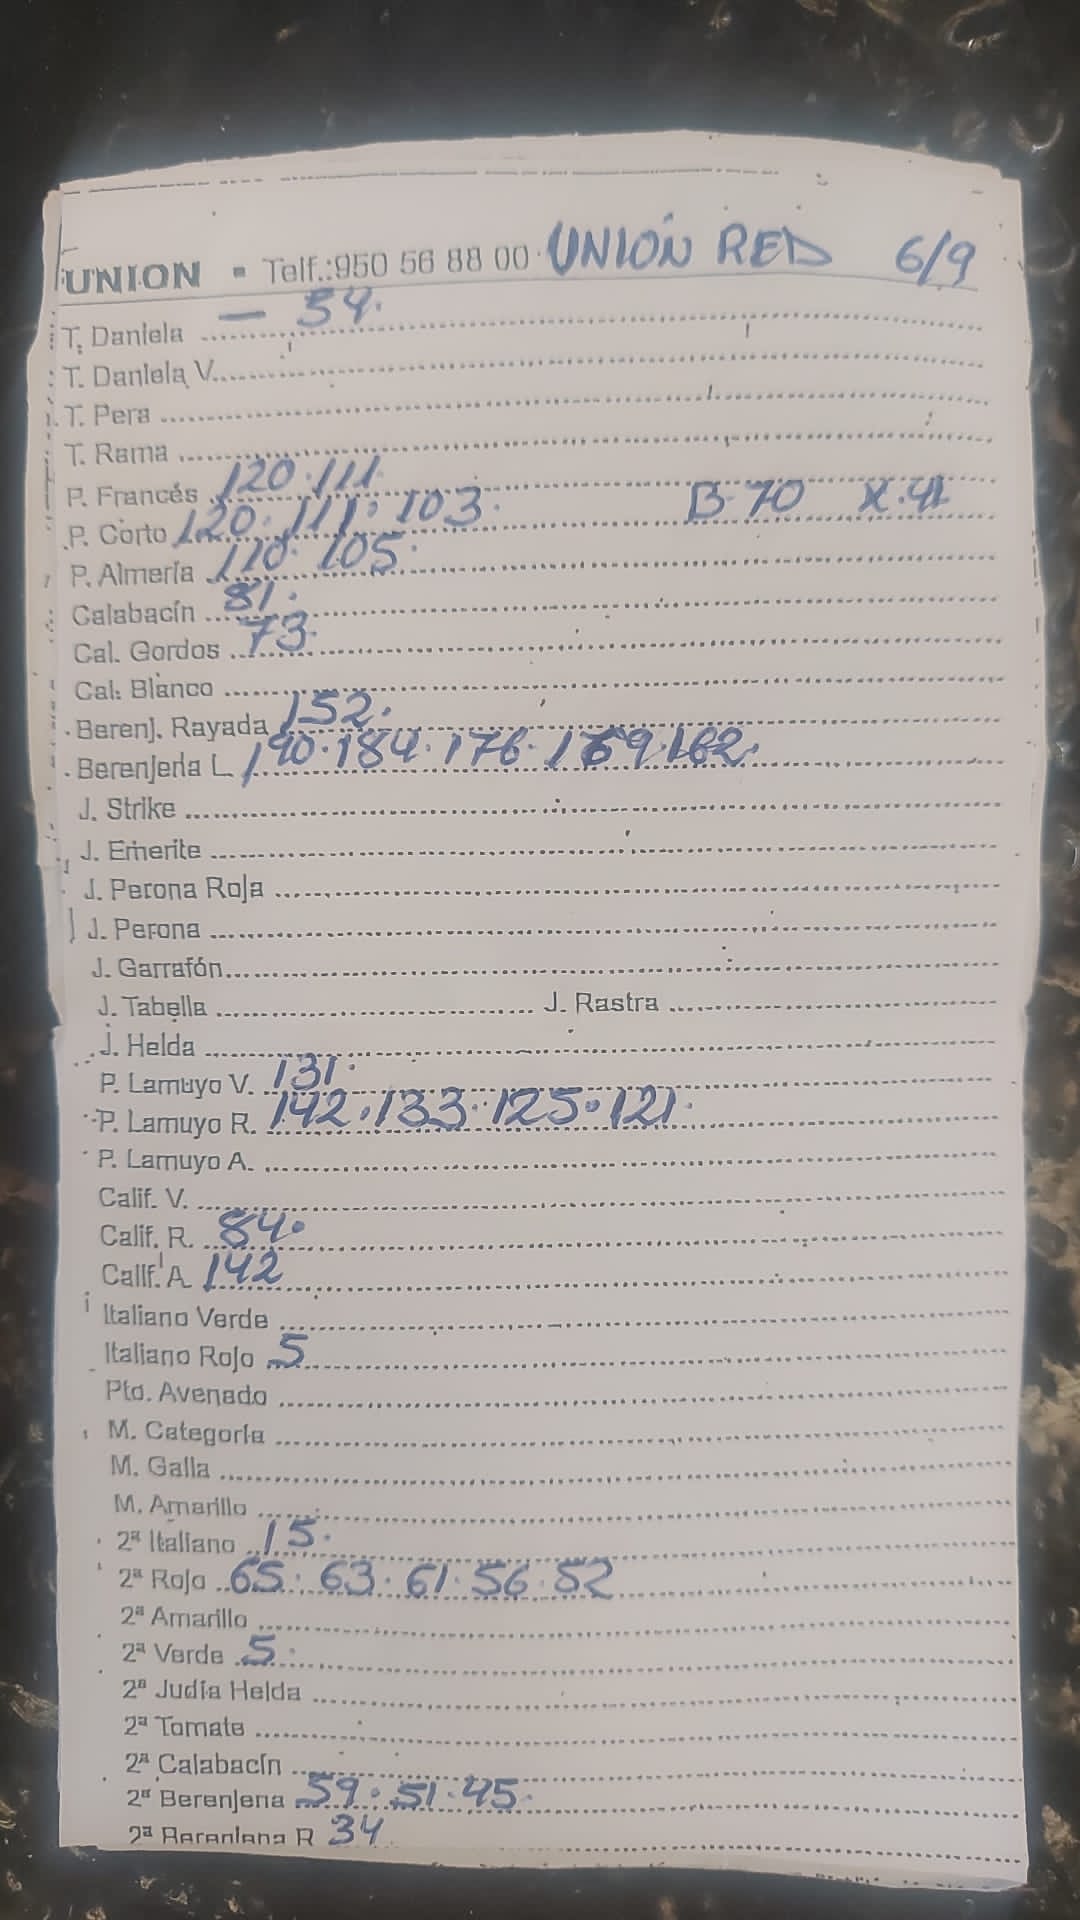 UNION - Telf.:950 56 88 00 UNIÓN RED 6/9
T. Daniela — 54.
T. Daniela V.
T. Pera
T. Rama
P. Francés 120. 111.
P. Corto 120. 111. 103. B-70 X.41
P. Almería 110. 105.
Calabacín 81.
Cal. Gordos 73.
Cal. Blanco
Berenj. Rayada 152.
Berenjena L. 190. 184. 176. 169. 162.
J. Strike
J. Emerite
J. Perona Roja
J. Perona
J. Garrafón
J. Tabella J. Rastra
J. Helda
P. Lamuyo V. 131.
P. Lamuyo R. 142. 133. 125. 121.
P. Lamuyo A.
Calif. V.
Calif. R. 84.
Calif. A 142
Italiano Verde
Italiano Rojo 5
Pto. Avenado
M. Categoría
M. Galia
M. Amarillo
2ª Italiano 15.
2ª Rojo 65. 63. 61. 56. 52
2ª Amarillo
2ª Verde 5.
2ª Judía Helda
2ª Tomate
2ª Calabacín
2ª Berenjena 59. 51. 45.
2ª Berenjena R 34